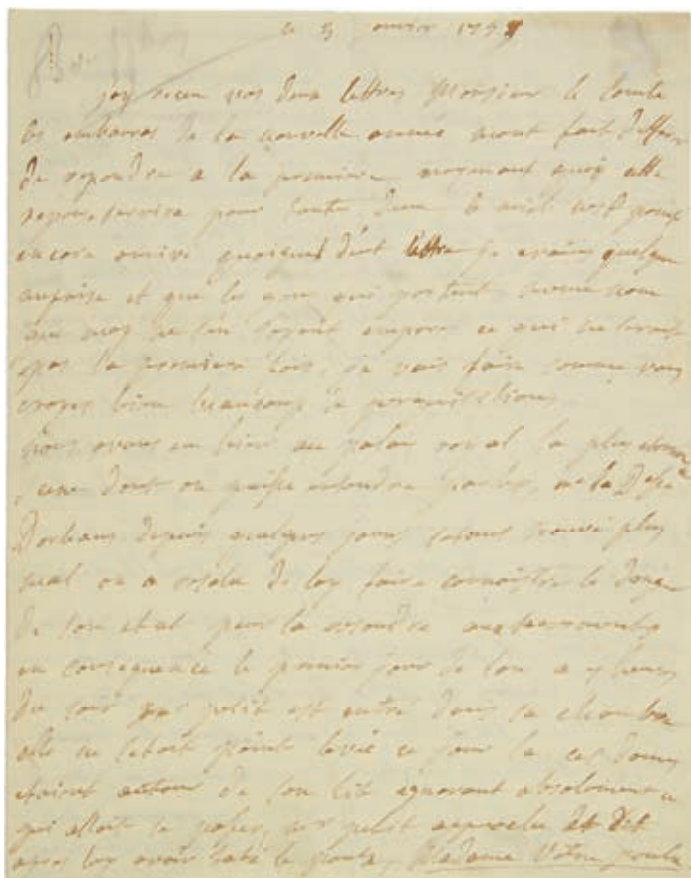 ce 3 janvier 175
jay receu vos deux lettres Monsieur le Comte
les embarras de la nouvelle année mont fait differer
de repondre a la premiere moyenant quoy cette
reponse servira pour toutes deux le miel nest point
encore arrivé quoiquil dont lettre je crains quelque
meprise et que les gens qui portent mesme nom
que moy ne sen soyent emparé ce qui ne seroit
pas la premiere fois, je vais faire comme vous
croyes bien beaucoup de perquisitions
Nous avons eu hier au palais royal la plus
scene dont on puisse entendre parler, me la Dsse
Dorleans depuis quelques jours setant trouvée plus
mal on a resolu de luy faire connoistre le danger
de son etat pour la resoudre aux sacrements
en consequence le premier jour de lan a heures
du soir mr petit est entré dans sa chambre
elle ne setoit point levée ce jour la ces dames
etoient autour de son lit ignorant absolument ce
qui alloit se passer, mr petit approche et dit
apres luy avoir taté le pouls, Madame Votre pouls